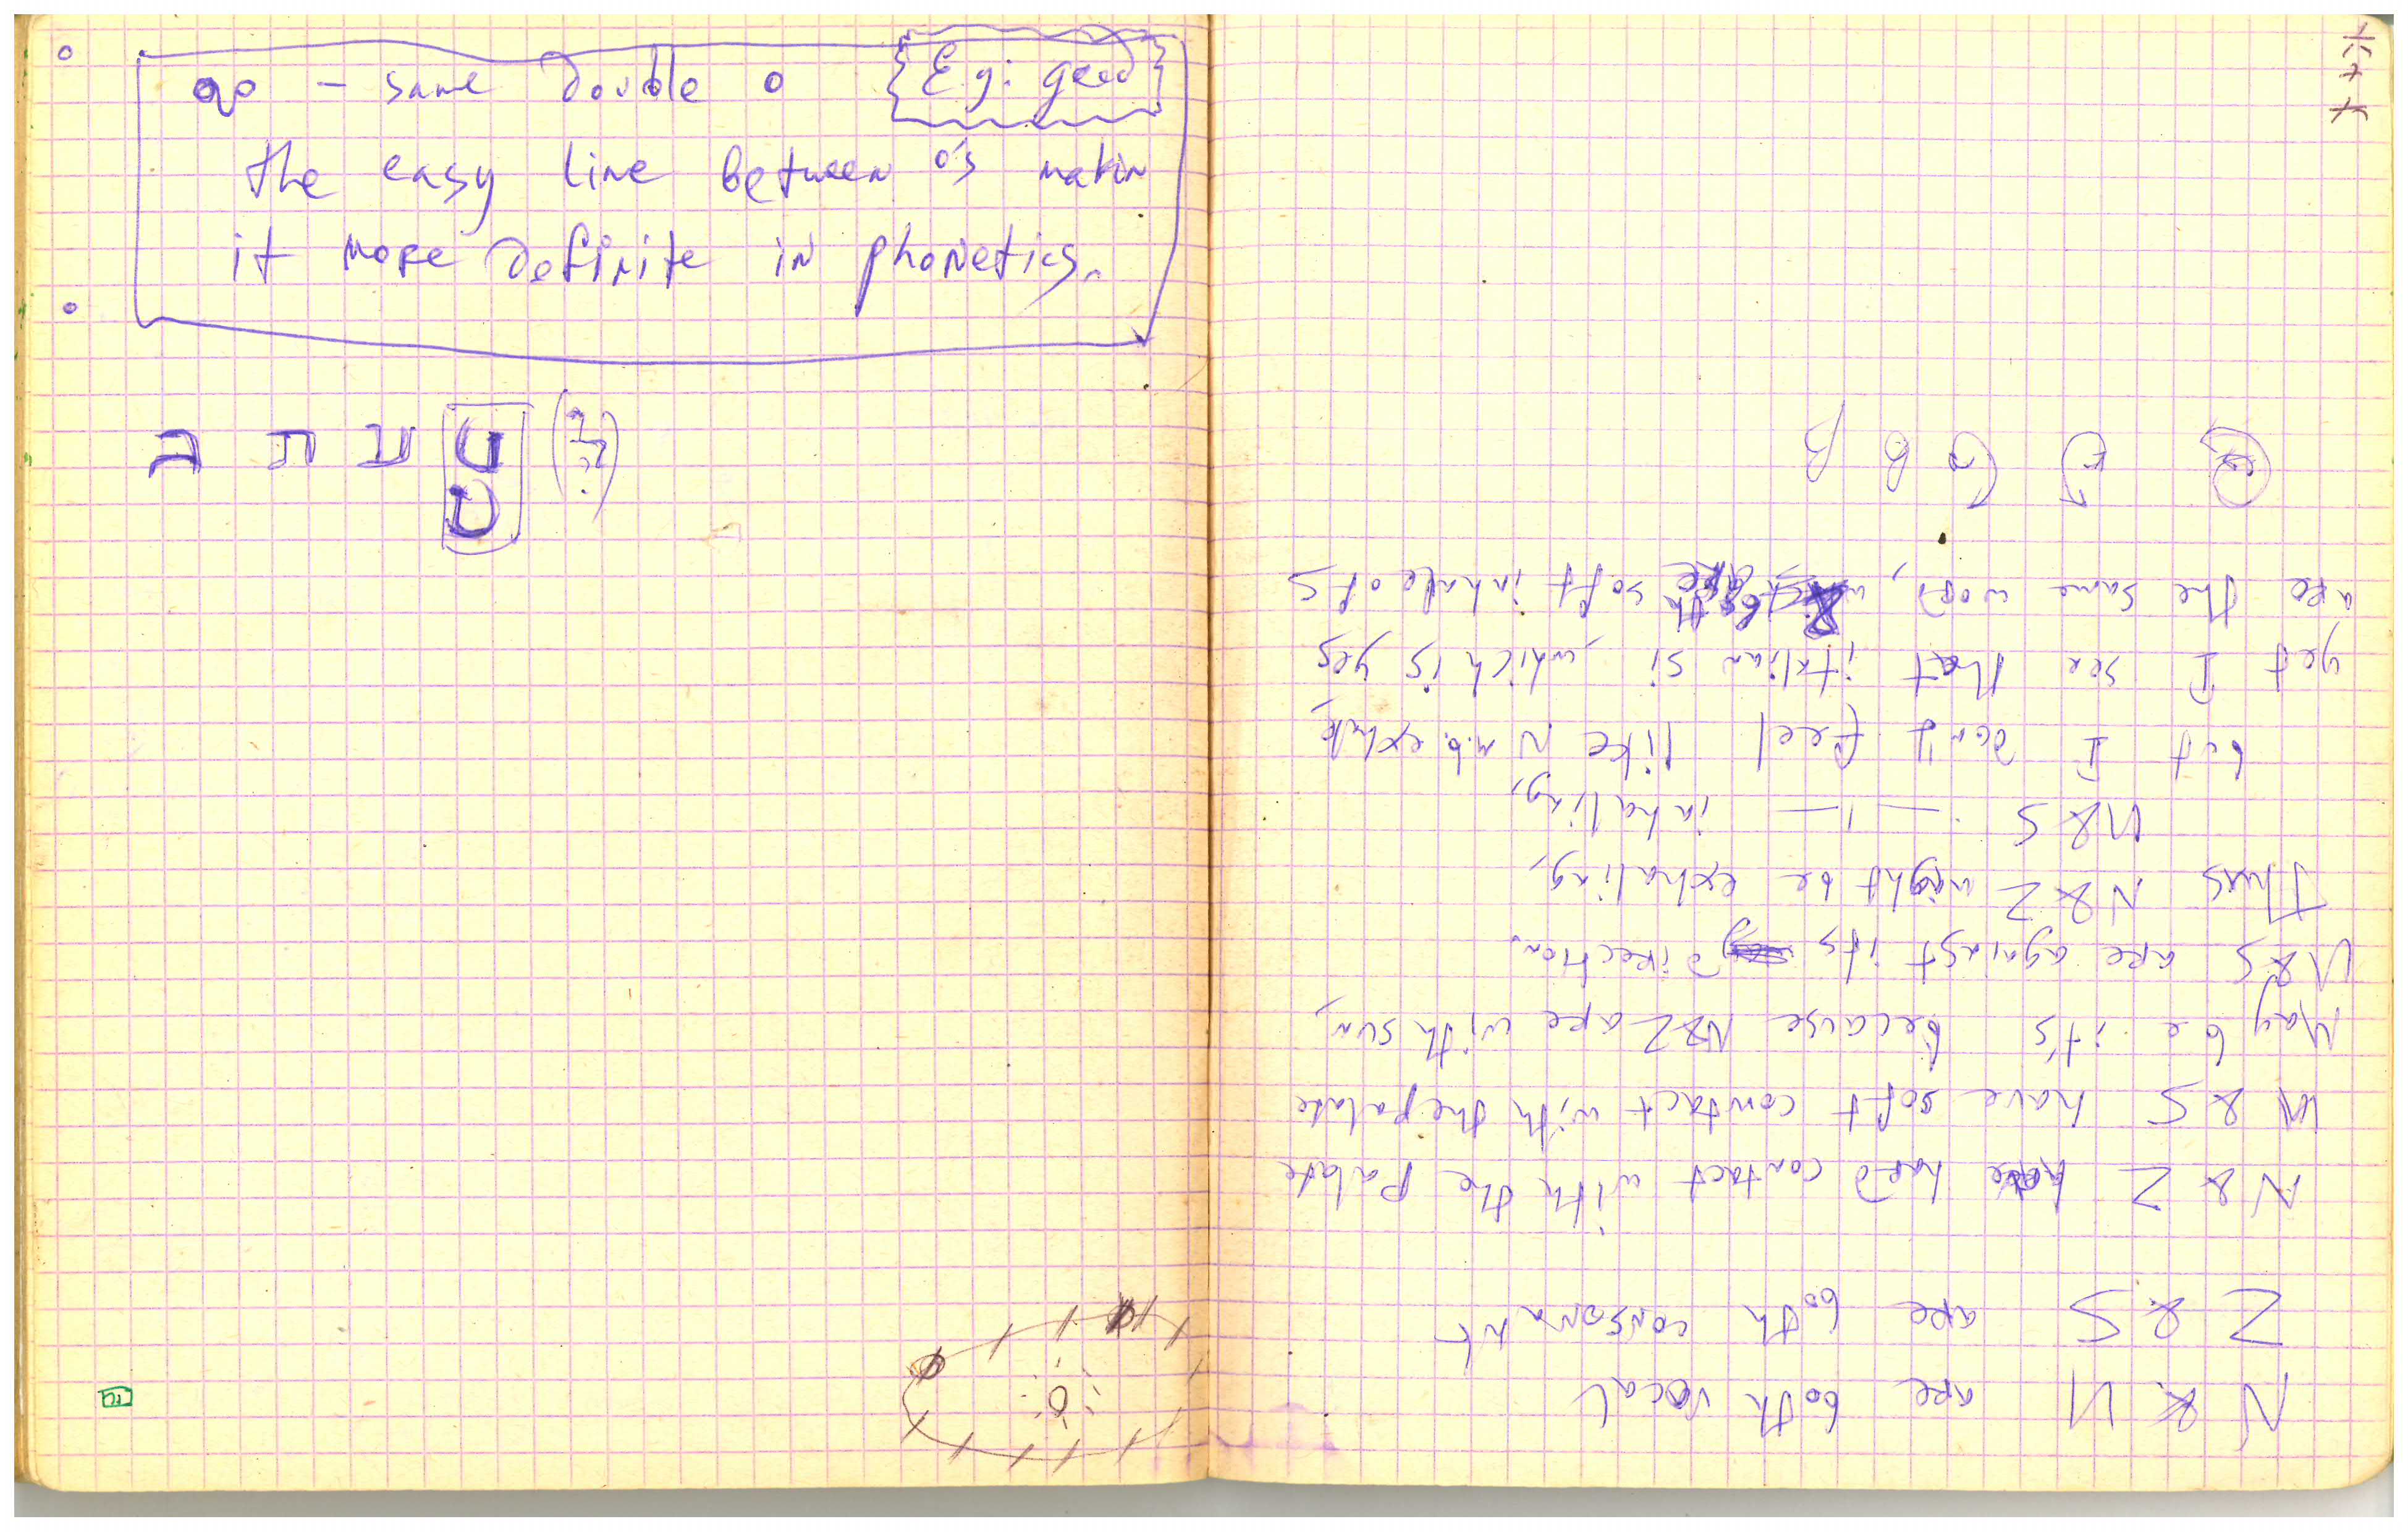 ꝏ – same double o {E.g: good}
the easy line between o's makin
it more definite in phonetics.
N & И are both vocal
Z & S are both consonant
N & Z have hard contact with the palate
И & S have soft contact with the palate
May be it's because N&Z are with sun,
И&S are against its direction.
Thus N & Z might be exhaling,
И & S —॥— inhaling,
but I don't feel like N m.b. exhale
yet I see that italian si, which is yes
are the same word, soft inhale of S